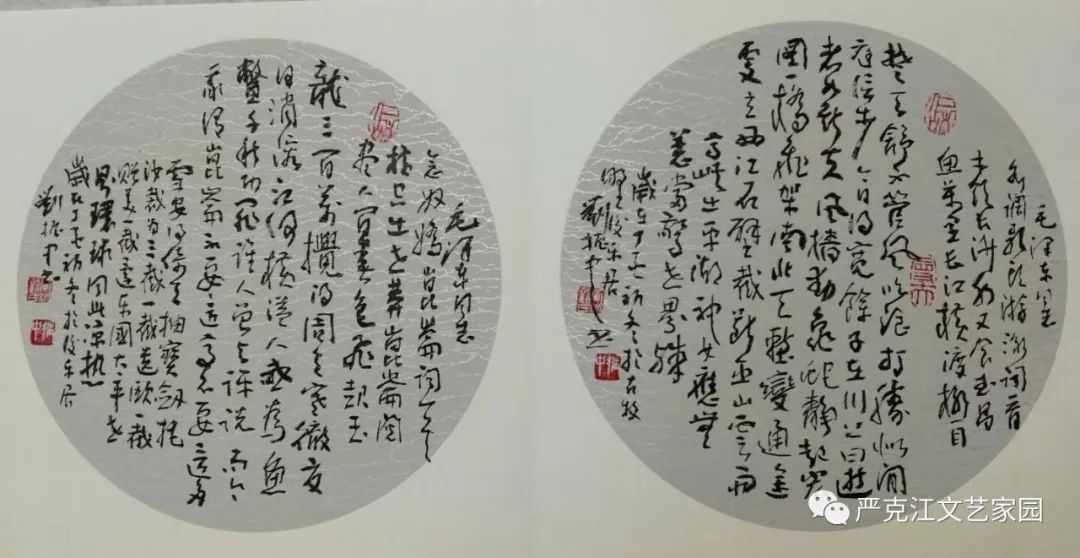 毛泽东
水调歌头游泳词一首
才饮长沙水又食武昌
鱼萬里长江横渡极目
楚天舒不管风吹浪打勝似闲
庭信步今日得宽餘子在川上曰逝
者如斯夫风樯动龟蛇静起宏
图一橋飞架南北天堑變通途
更立西江石壁截断巫山云雨
高峡出平湖神女應无
恙當驚世界殊
歲在丁亥初冬於古牧
野 乐居
劉振中书
毛泽东同志
念奴嬌崑崙词
横空出世莽崑崙阅
尽人间春色飛起玉
龍三百萬攪得周天寒徹夏
日消溶江河横溢人或为鱼
鳖千秋功罪谁人曾与评说而今
我谓崑崙不要这高不要这多
雪安得倚天抽寶劍把
汝裁为三截一截遗欧一截
赠美一截还东國太平世
界環球同此凉热
歲在丁亥初冬於 乐居
劉振中书
严克江文艺家园